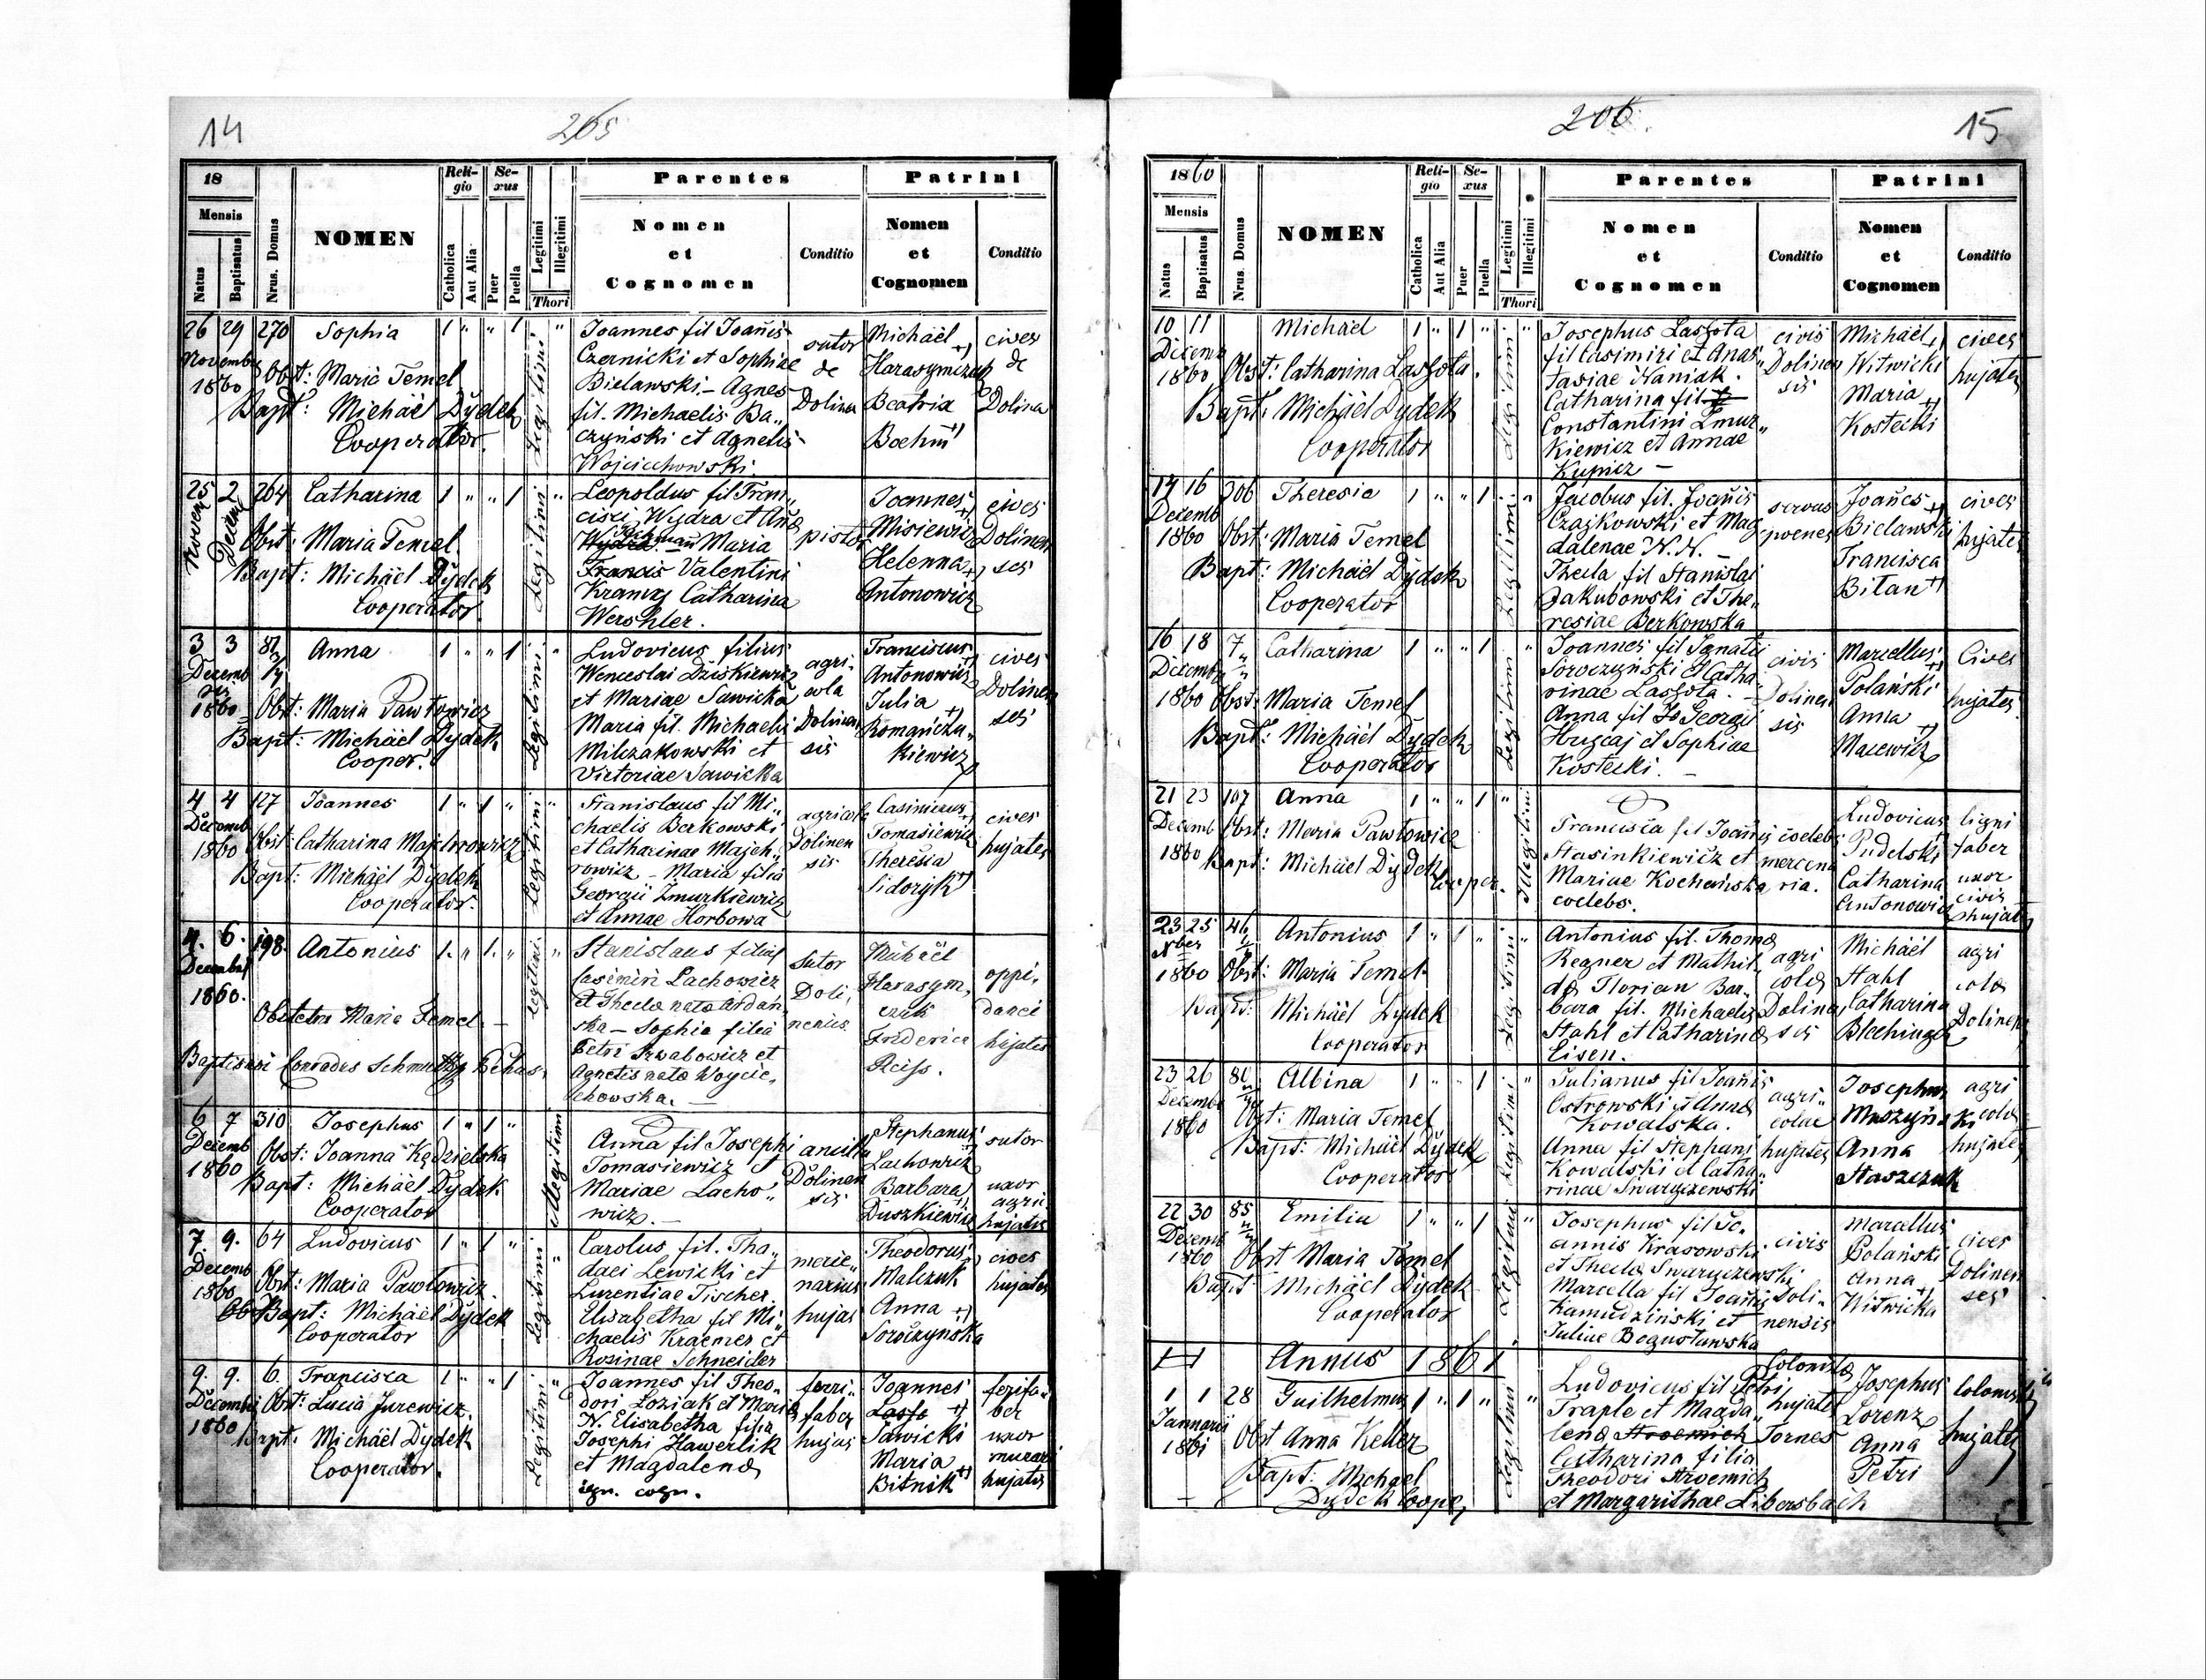 14
265
18
Mensis
Natus
Baptisatus
Nrus. Domus
NOMEN
Reli-
gio
Catholica
Aut Alia
Se-
xus
Puer
Puella
Legitimi
Illegitimi
Thori
Parentes
Nomen
et
Cognomen
Conditio
Patrini
Nomen
et
Cognomen
Conditio
26 29 270 Sophia 1 " " 1 "
Novembr
1860
Obst: Maria Temel
Bapt: Michäel Dydek
Cooperator.
Legitimi
Joannes fil Joañis
Czernicki et Sophiae
Bielawski - Agnes
fil. Michaelis Ba„
czyński et Agnetis
Wojciechowski.
sutor
de
Dolina
Michäel +)
Harasymczuk
Beatrix
Boehm +)
cives
de
Dolina
25 2 264 Catharina 1 " " 1 "
Novem
Decem
Obst: Maria Temel
Bapt: Michäel Dydek
Cooperator.
Legitimi
Leopoldus fil Fran„
cisci Wydra et
Maria
Valentini
Catharina
Wershler.
pistor
Joannes +)
Misiewicz
Helenna +)
Antonowicz
cives
Dolinen
ses
3 3 81 Anna 1 " " 1 "
Decemb
1860
Obst: Maria Pawłowicz
Bapt: Michäel Dydek
Cooper.
Legitimi
Ludovicus filius
Wenceslai Dziskiewicz
et Mariae Sawicka
Maria fil. Michaelis
Milczakowski et
Victoriae Sawicka
agri„
cola
Dolinen
sis
Franciscus
Antonowicz
Julia +)
Romańcza„
kiewicz
cives
Dolinen
ses
4 4 127 Joannes 1 " 1 " "
Decemb
1860
Obst: Catharina Majchrowicz
Bapt: Michäel Dydek
Cooperator.
Legitimi
Stanislaus fil Mi„
chaelis Berkowski
et Catharinae Majch„
rowicz - Maria filia
Georgii Zmurkiewicz
et Annae Horbowa
agricola
Dolinen
sis
Casimirus +)
Tomasiewicz
Theresia
Sidoryk +)
cives
hujates
4. 6. 198. Antonius 1. " 1. " "
Decembris
1860.
Obstetrix Maria Temel. -
Legitimi
Stanislaus filius
Casimiri Lachowicz
- Sophia filia
Petri et
Agnetis nata Woycie„
chowska. -
Sutor
Doli„
nensis
Michaël
Harasym„
czuk
Friderica
Reiss.
oppi„
danei
hujates
6 7 310 Josephus 1 " 1 "
Decemb
1860
Obst: Joanna Kędzielska
Bapt: Michäel Dydek
Cooperator
Illegitimi
Anna fil Josephi
Tomasiewicz et
Mariae Lacho„
wicz. -
ancilla
Dolinen
sis
Stephanus
Lachowicz
Barbara
Duszkiewicz
sutor
uxor
agric
hujatis
7. 9. 64 Ludovicus 1 " 1 " "
Decemb
1860
Obst: Maria Pawłowicz.
Bapt: Michäel Dydek
Cooperator
Legitimi
Carolus fil. Tha„
daei Lewicki et
Lurentiae Tischer.
Elisabetha fil Mi„
chaelis Kraemer et
Rosinae Schneider
merce„
narius
hujas
Theodorus
Malczuk
Anna +)
Soroczynska
cives
hujates
9. 9. 6. Francisca 1 " " 1 "
Decembr
1860
Obst: Lucia Jurewicz.
Bapt: Michäel Dydek
Cooperator.
Legitimi
Joannes fil Theo„
dori Loziak et Maria
N. Elisabetha filia
Josephi Hawerlik
et Magdalena
ign. cogn.
ferri„
faber
hujas
Joannes
Sawicki
Maria
Bitnik +)
ferifa„
ber
uxor
murari
hujates
206
15
1860
Mensis
Natus
Baptisatus
Nrus. Domus
NOMEN
Reli-
gio
Catholica
Aut Alia
Se-
xus
Puer
Puella
Legitimi
Illegitimi
Thori
Parentes
Nomen
et
Cognomen
Conditio
Patrini
Nomen
et
Cognomen
Conditio
10 11 Michäel 1 " 1 " "
Decemb
1860
Obst: Catharina Lassota.
Bapt: Michäel Dydek
Cooperator
Legitimi
Josephus Lassota
fil Casimiri et Anas„
tasiae Naniak.
Catharina fil
Constantini Zmur„
kiewicz et Annae
Kupicz -
civis
Dolinen
sis
Michäel +)
Witwicki
Maria +)
Kostecki
cives
hujates
14 16 306 Theresia 1 " " 1 "
Decemb
1860
Obst: Maria Temel
Bapt: Michäel Dydek
Cooperator
Legitimi
Jacobus fil. Joañis
Czajkowski et Mag
dalenae N. N. -
Thecla fil Stanislai
Jakubowski et The„
resiae Berkowska
servus
Joañes +)
Bielawski
Francisca
Bitan +)
cives
hujates
16 18 7 Catharina 1 " " 1 "
Decemb
1860
Obst: Maria Temel
Bapt: Michäel Dydek
Cooperator
Legitimi
Joannes fil Ignatii
Soroczyński et Catha„
rinae Lassota. -
Anna fil Georgii
Huzcaj et Sophiae
Kostecki. -
civis
Dolinen
sis
Marcellus +)
Polański
Anna +)
Macewicz
Cives
hujates
21 23 107 Anna 1 " " 1 "
Decemb
1860
Obst: Maria Pawłowicz
Bapt: Michäel Dydek
Cooper.
Illegitimi
Francisca fil Joañis
Stasinkiewicz et
Mariae Kochańska
coelebs.
coelebs
mercena
ria.
Ludovicus
Pudelski
Catharina
Antonowicz
ligni
faber
uxor
civis
hujatis
23 25 46 Antonius 1 " 1 " "
Xber
1860
Obst: Maria Temel
Bapt: Michäel Dydek
Cooperator
Legitimi
Antonius fil. Thoma
Kegner et Mathil„
da Florian Bar„
bara fil. Michaelis
Stahl et Catharina
Eisen.
agri
cola
Dolinen
sis
Michäel
Stahl
Catharina
Blechinger
agri
cola
Dolinen
23 26 80 Albina 1 " " 1 "
Decemb
1860
Obst: Maria Temel
Bapt: Michäel Dydek
Cooperator
Legitimi
Julianus fil Joañis
Ostrowski et Anna
Kowalska.
Anna fil Stephani
Kowalski et Catha„
rinae Swaryczewski
agri„
colae
hujates
Josephus
Muszyński
Anna
Staszczuk
agri
cola
hujates
22 30 85 Emilia 1 " " 1 "
Decemb
1860
Obst Maria Temel
Bapt Michäel Dydek
Cooperator
Legitimi
Josephus fil Jo„
annis Krasowski
et Thecla Swaryczewski
Marcella fil Joañis
Zamudziński et
Juliae Bogusławska
civis
Doli„
nensis
Marcellus
Polański
Anna +)
Witwicka
cives
Dolinen
ses
Annus 1861
1 1 28 Guilhelmus 1 " 1 " "
Januarii
1861
Obst Anna Keller
Bapt: Michael
Dydek Cooper
Legitimi
Ludovicus fil Petri
Traple et Magda„
lena Tornes
Catharina filia
Theodori Aroemich
et Margarithae Libersbach
Colonista
hujatis
Josephus
Lorenz
Anna
Petri
Colonista
hujates